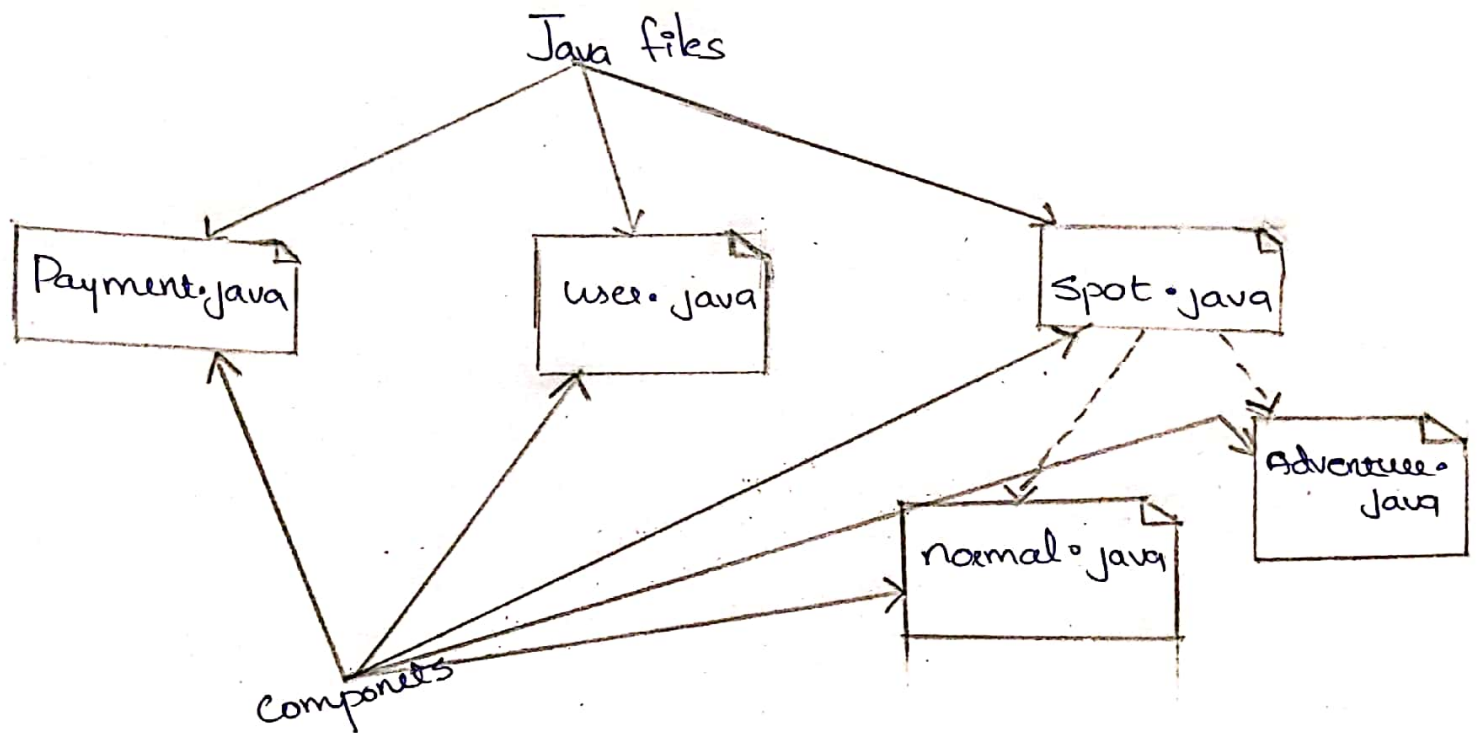 Java files
Payment.java
user.java
Spot.java
Adventure.
java
normal.java
Componets